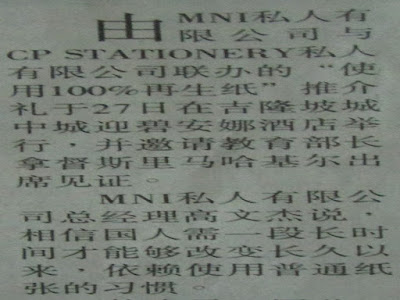 由MNI私人有
限公司与
CP STATIONERY私人
有限公司联办的“使
用100%再生纸”推介
礼于27日在吉隆坡城
中城迎碧安娜酒店举
行，并邀请教育部长
拿督斯里马哈基尔出
席见证。
MNI私人有限公
司总经理高文杰说，
相信国人需一段长时
间才能够改变长久以
来，依赖使用普通纸
张的习惯。